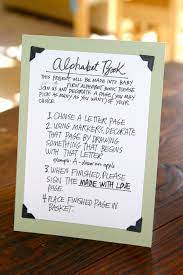 Alphabet Book
THIS PROJECT WILL BE MADE INTO BABY
FIRST ALPHABET BOOK. PLEASE
JOIN US AND DECORATE A PAGE (YOU MAY
PICK AS MANY AS YOU WANT) OF YOUR
CHOICE
1. CHOOSE A LETTER PAGE
2. USING MARKERS, DECORATE
THAT PAGE BY DRAWING
SOMETHING THAT BEGINS
WITH THAT LETTER
example: A - draw an apple
3. WHEN FINISHED, PLEASE
SIGN THE MADE WITH LOVE
PAGE.
4. PLACE FINISHED PAGE IN
BASKET.